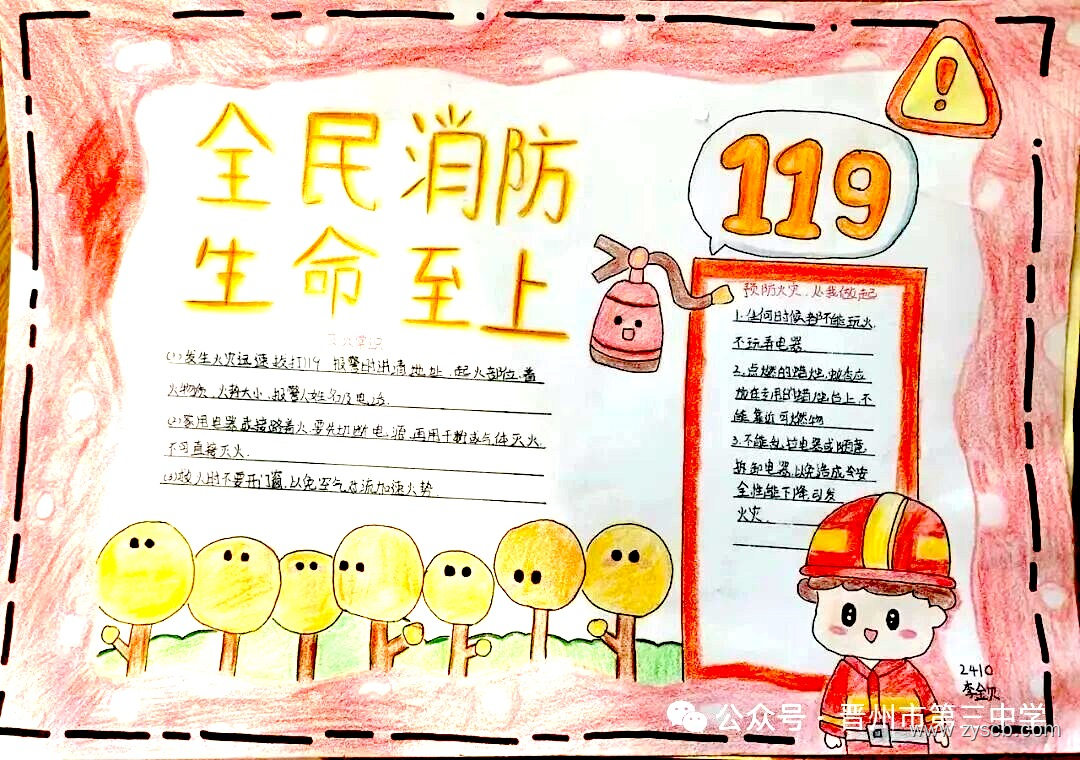 全民消防
生命至上
119
(1)发生火灾迅速拨打119 报警时讲清地址、起火部位、着
火物质、火势大小、报警人姓名及电话.
(2)家用电器或线路着火,要先切断电源,再用干粉或气体灭火
不可直接灭火.
(3)救火时不要开门窗,以免空气对流加速火势.
预防火灾,从我做起
1.任何时候都不能玩火.
不玩弄电器
2.点燃的蜡烛,蚊香应
放在专用的架台上,不
能靠近可燃物
3.不能乱拉电器或随意
拆卸电器,以免造成安
全性能下降,引发
火灾.
2410
李金贝
公众号·晋州市第三中学
www.zyscb.com